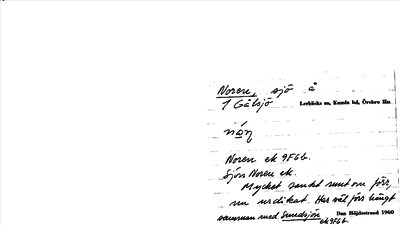 Noren, sjö å
1 Gålsjö Lerbäcks sn, Kumla hd, Örebro län
Noren ek 9F6b.
Sjön Noren ek.
Mycket sankt runt om förr,
nu urdikat. Har väl förr hängt
samman med Sundsjön Dan Höjdestrand 1960
ek 9F6b